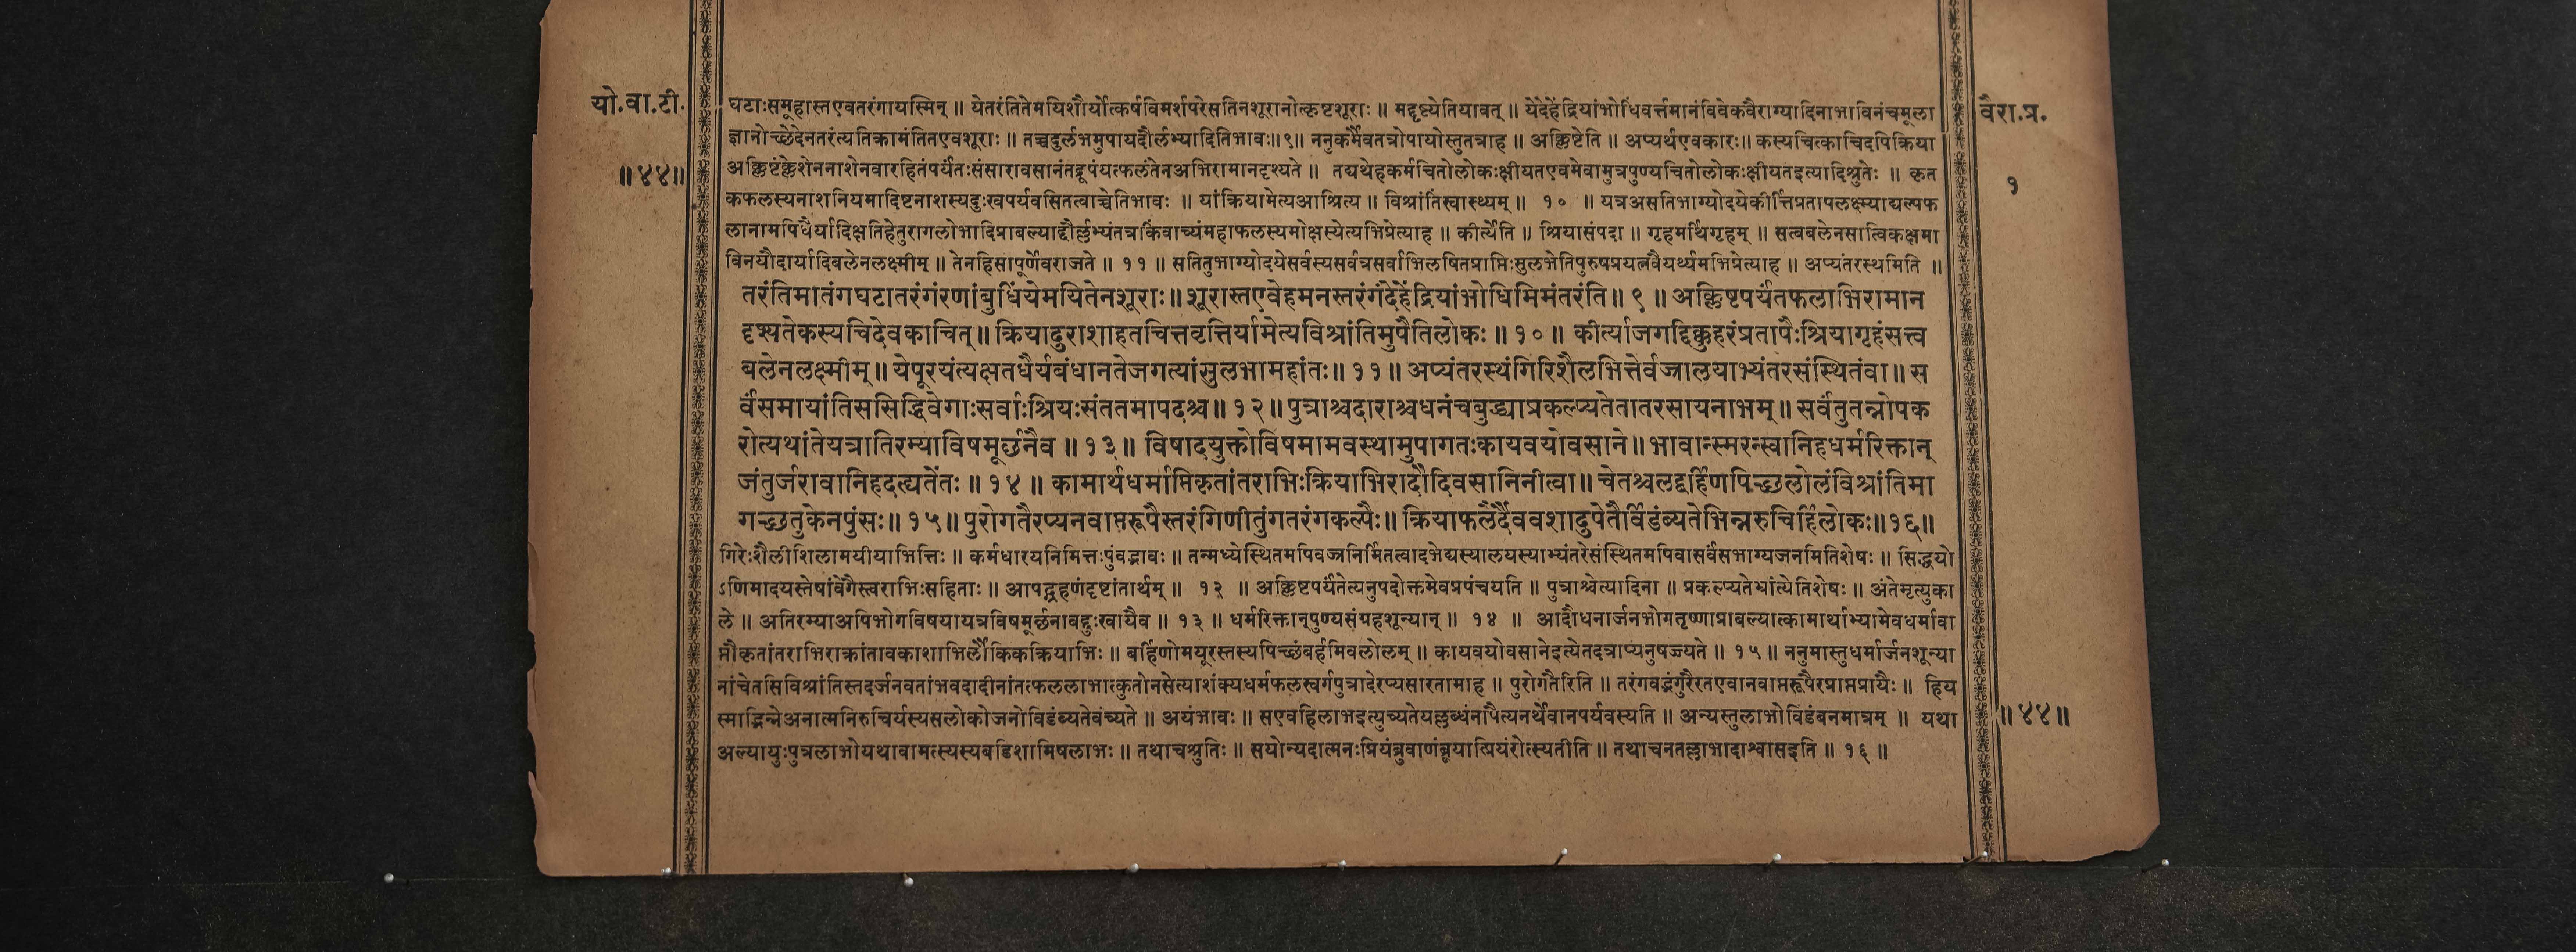 यो.वा.टी.
॥४४॥
घटाःसमूहास्तएवतरंगायस्मिन् ॥ येतरंतितेमयिशौर्योत्कर्षविमर्शपरेसतिनशूरानोत्कृष्टशूराः ॥ मद्दृष्ट्येतियावत् ॥ येदेहेंद्रियांभोधिंवर्त्तमानंविवेकवैराग्यादिनाभाविनंचमूला
ज्ञानोच्छेदेनतरंत्यतिक्रामंतितएवशूराः ॥ तच्चदुर्लभमुपायदौर्लभ्यादितिभावः॥९॥ ननुकर्मैवतत्रोपायोस्तुतत्राह ॥ अक्लिष्टेति ॥ अप्यर्थएवकारः॥ कस्यचित्काचिदपिक्रिया
अक्लिष्टंक्लेशेननाशेनवारहितंपर्यंतःसंसारावसानंतद्रूपंयत्फलंतेनअभिरामानदृश्यते ॥ तद्यथेहकर्मचितोलोकःक्षीयतएवमेवामुत्रपुण्यचितोलोकःक्षीयतइत्यादिश्रुतेः ॥ कृत
कफलस्यनाशनियमादिष्टनाशस्यदुःखपर्यवसितत्वाच्चेतिभावः ॥ यांक्रियामेत्यआश्रित्य ॥ विश्रांतिंस्वास्थ्यम् ॥ १० ॥ यत्रअसतिभाग्योदयेकीर्त्तिप्रतापलक्ष्म्याद्यल्पफ
लानामपिधैर्यादिक्षतिहेतुरागलोभादिप्राबल्याद्दौर्लभ्यंतत्रकिंवाच्यंमहाफलस्यमोक्षस्येत्यभिप्रेत्याह ॥ कीर्त्येति ॥ श्रियासंपदा ॥ गृहमर्थिगृहम् ॥ सत्वबलेनसात्विकक्षमा
विनयौदार्यादिबलेनलक्ष्मीम् ॥ तेनहिसापूर्णेवराजते ॥ ११ ॥ सतितुभाग्योदयेसर्वस्यसर्वत्रसर्वाभिलषितप्राप्तिःसुलभेतिपुरुषप्रयत्नवैयर्थ्यमभिप्रेत्याह ॥ अप्यंतरस्थमिति ॥
तरंतिमातंगघटातरंगंरणांबुधिंयेमयितेनशूराः॥शूरास्तएवेहमनस्तरंगंदेहेंद्रियांभोधिमिमंतरंति॥ ९ ॥ अक्लिष्टपर्यंतफलाभिरामान
दृश्यतेकस्यचिदेवकाचित्॥ क्रियादुराशाहतचित्तवृत्तिर्यामेत्यविश्रांतिमुपैतिलोकः ॥ १० ॥ कीर्त्याजगद्दिक्कुहरंप्रतापैःश्रियागृहंसत्त्व
बलेनलक्ष्मीम् ॥ येपूरयंत्यक्षतधैर्यबंधानतेजगत्यांसुलभामहांतः॥ ११ ॥ अप्यंतरस्थंगिरिशैलभित्तेर्वज्रालयाभ्यंतरसंस्थितंवा॥ स
र्वंसमायांतिससिद्धिवेगाःसर्वाःश्रियःसंततमापदश्च॥ १२ ॥ पुत्राश्चदाराश्चधनंचबुद्ध्याप्रकल्प्यतेतातरसायनाभम् ॥ सर्वंतुतन्नोपक
रोत्यथांतेयत्रातिरम्याविषमूर्छनैव ॥ १३ ॥ विषादयुक्तोविषमामवस्थामुपागतःकायवयोवसाने॥ भावान्स्मरन्स्वानिहधर्मरिक्तान्
जंतुर्जरावानिहदह्यतेंतः ॥ १४ ॥ कामार्थधर्माप्तिकृतांतराभिःक्रियाभिरादौदिवसानिनीत्वा॥ चेतश्चलद्बर्हिणपिच्छलोलंविश्रांतिमा
गच्छतुकेनपुंसः॥ १५॥ पुरोगतैरप्यनवाप्तरूपैस्तरंगिणीतुंगतरंगकल्पैः॥ क्रियाफलैर्दैववशादुपेतैर्विडंब्यतेभिन्नरुचिर्हिलोकः॥१६॥
गिरेःशैलीशिलामयीयाभित्तिः ॥ कर्मधारयनिमित्तःपुंवद्भावः ॥ तन्मध्येस्थितमपिवज्रनिर्मितत्वादभेद्यस्यालयस्याभ्यंतरेसंस्थितमपिवासर्वंसभाग्यजनमितिशेषः ॥ सिद्धयो
ऽणिमादयस्तेषांवेगैस्त्वराभिःसहिताः ॥ आपद्ग्रहणंदृष्टांतार्थम् ॥ १२ ॥ अक्लिष्टपर्यंतेत्यनुपदोक्तमेवप्रपंचयति ॥ पुत्राश्चेत्यादिना ॥ प्रकल्प्यतेभ्रांत्येतिशेषः ॥ अंतेमृत्युका
ले ॥ अतिरम्याअपिभोगविषयायत्रविषमूर्छनावद्दुःखायैव ॥ १३ ॥ धर्मरिक्तान्पुण्यसंग्रहशून्यान् ॥ १४ ॥ आदौधनार्जनभोगतृष्णाप्राबल्यात्कामार्थाभ्यामेवधर्मावा
प्तौकृतांतराभिराक्रांतावकाशाभिर्लौकिकक्रियाभिः ॥ बर्हिणोमयूरस्तस्यपिच्छंबर्हमिवलोलम् ॥ कायवयोवसानेइत्येतदत्राप्यनुषज्यते ॥ १५ ॥ ननुमास्तुधर्मार्जनशून्या
नांचेतसिविश्रांतिस्तदर्जनवतांभवदादीनांतत्फललाभात्कुतोनसेत्याशंक्यधर्मफलस्वर्गपुत्रादेरप्यसारतामाह ॥ पुरोगतैरिति ॥ तरंगवद्भंगुरैरतएवानवाप्तरूपैरप्राप्तप्रायैः ॥ हिय
स्माद्भिन्नेअनात्मनिरुचिर्यस्यसलोकोजनोविडंब्यतेवंच्यते ॥ अयंभावः ॥ सएवहिलाभइत्युच्यतेयल्लब्धंनापैत्यनर्थेवानपर्यवस्यति ॥ अन्यस्तुलाभोविडंबनमात्रम् ॥ यथा
अल्पायुःपुत्रलाभोयथावामत्स्यस्यबडिशामिषलाभः ॥ तथाचश्रुतिः ॥ सयोन्यदात्मनःप्रियंब्रुवाणंब्रूयात्प्रियंरोत्स्यतीति ॥ तथाचनतल्लाभादाश्वासइति ॥ १६ ॥
वैरा.प्र.
१
॥४४॥